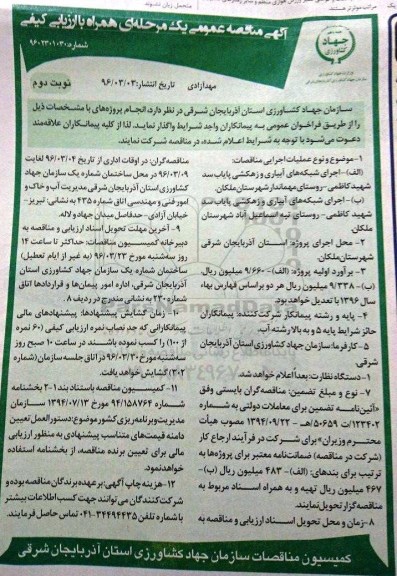 آگهی مناقصه عمومی یک مرحله‌ای همراه با ارزیابی کیفی
شماره: ۹۶۰۲۳۰۱۰۳۰
جهاد
کشاورزی
نوبت دوم
تاریخ انتشار: ۹۶/۰۳/۰۳
مهدآزادی
سازمان جهاد کشاورزی استان آذربایجان شرقی در نظر دارد، انجام پروژه‌های با مشخصات ذیل
را از طریق فراخوان عمومی به پیمانکاران واجد شرایط واگذار نماید. لذا از کلیه پیمانکاران علاقه‌مند
دعوت می‌شود با توجه به شرایط اعلام شده، در مناقصه شرکت نمایند.
۱- موضوع و نوع عملیات اجرایی مناقصات:
(الف)- اجرای شبکه‌های آبیاری و زهکشی پایاب سد
شهید کاظمی- روستای مهماندار شهرستان ملکان.
(ب)- اجرای شبکه‌های آبیاری و زهکشی پایاب سد
شهید کاظمی- روستای تپه اسماعیل آباد شهرستان
ملکان.
۲- محل اجرای پروژه: استان آذربایجان شرقی
شهرستان ملکان.
۳- برآورد اولیه پروژه: (الف)- ۹/۶۶۰ میلیون ریال
(ب)- ۹/۳۳۸ میلیون ریال هر دو براساس فهارس بهاء
سال ۱۳۹۶ با تعدیل خواهد بود.
۴- پایه و رشته پیمانکار شرکت کننده: پیمانکاران
حائز شرایط پایه ۵ و به بالا رشته آب.
۵- کارفرما: سازمان جهاد کشاورزی استان آذربایجان
شرقی.
۶- دستگاه نظارت: بعداً اعلام خواهد شد.
۷- نوع و مبلغ تضمین: مناقصه گران بایستی وفق
«آئین‌نامه تضمین برای معاملات دولتی به شماره
۱۲۳۴۰۲/ت۵۰۶۵۹هـ - ۱۳۹۴/۰۹/۲۲ مصوب هیأت
محترم وزیران» برای شرکت در فرآیند ارجاع کار
(شرکت در مناقصه) ضمانت‌نامه معتبر برای پروژه‌ها به
ترتیب برای بندهای: (الف)- ۴۸۳ میلیون ریال (ب)-
۴۶۷ میلیون ریال تهیه و به همراه اسناد مربوط به
مناقصه گزار تحویل نمایند.
۸- زمان و محل تحویل اسناد ارزیابی و مناقصه به
مناقصه گران: در اوقات اداری از تاریخ ۹۶/۰۳/۰۴ لغایت
۹۶/۰۳/۰۹ در محل ساختمان شماره یک سازمان جهاد
کشاورزی استان آذربایجان شرقی مدیریت آب و خاک و
امور فنی و مهندسی اتاق شماره ۴۳۵ به نشانی: تبریز-
خیابان آزادی- حدفاصل میدان جهاد و لاله.
۹- آخرین مهلت تحویل اسناد ارزیابی و مناقصه به
دبیرخانه کمیسیون مناقصات: حداکثر تا ساعت ۱۴
روز سه‌شنبه مورخ ۹۶/۰۳/۲۳ (به غیر از ایام تعطیل)
ساختمان شماره یک سازمان جهاد کشاورزی استان
آذربایجان شرقی، اداره امور پیمان‌ها و قراردادها اتاق
شماره ۲۳۰ به نشانی مندرج در ردیف ۸.
۱۰- زمان گشایش پیشنهادها: پیشنهادهای مالی
پیمانکارانی که حد نصاب نمره ارزیابی کیفی (۶۰ نمره
از ۱۰۰) را کسب نموده باشند در ساعت ۱۰ صبح روز
سه‌شنبه مورخ ۹۶/۰۳/۳۰ در اتاق جلسه سازمان (شماره
۳۰۲) گشایش خواهد یافت.
۱۱- کمیسیون مناقصه باستناد بند ۱-۲ بخشنامه
شماره ۹۴/۱۵۸۷۶۴ مورخ ۱۳۹۴/۰۷/۱۳ سازمان
مدیریت و برنامه‌ریزی کشور موضوع: دستورالعمل تعیین
دامنه قیمت‌های متناسب پیشنهادی به منظور ارزیابی
مالی برای تعیین برنده مناقصه، از بخشنامه استفاده
خواهد نمود.
۱۲- هزینه چاپ آگهی: بر عهده برندگان مناقصه بوده و
شرکت کنندگان می‌توانند جهت کسب اطلاعات بیشتر
با شماره تلفن ۳۴۴۹۴۴۳۵-۰۴۱ تماس حاصل فرمایند.
کمیسیون مناقصات سازمان جهاد کشاورزی استان آذربایجان شرقی